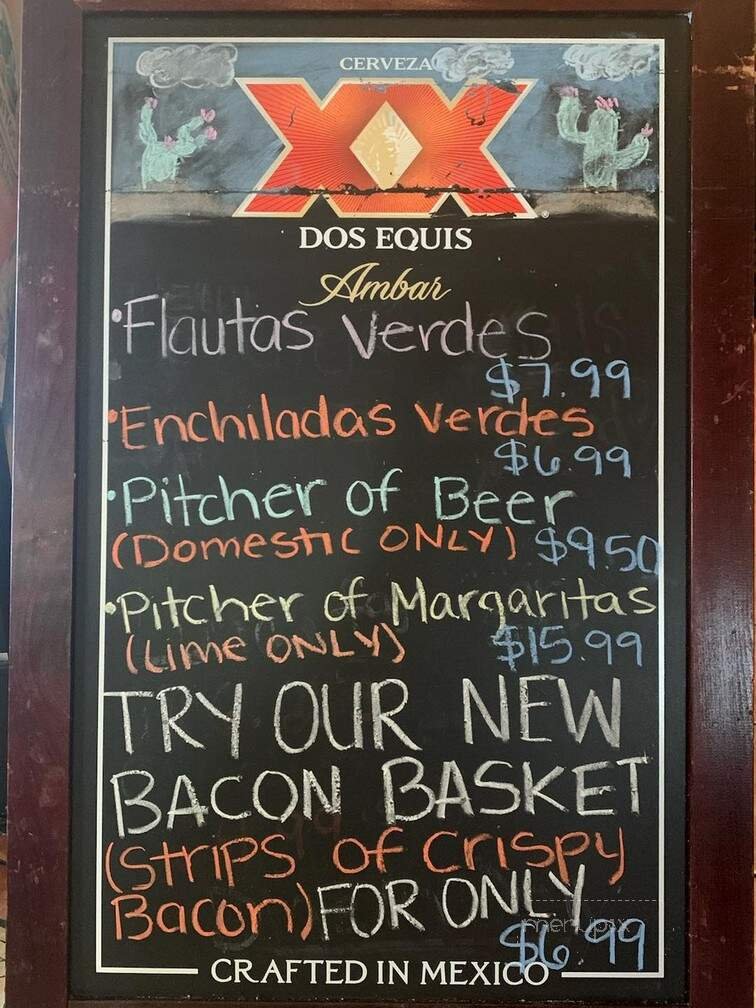 CERVEZA
XX
®
DOS EQUIS
Ambar
•Flautas verdes
$7.99
•Enchiladas verdes
$6.99
•Pitcher of Beer
(Domestic ONLY) $9.50
•Pitcher of Margaritas
(Lime ONLY) $15.99
TRY OUR NEW
BACON BASKET
(STRIPS of Crispy
Bacon) FOR ONLY
menupix
$6.99
CRAFTED IN MEXICO